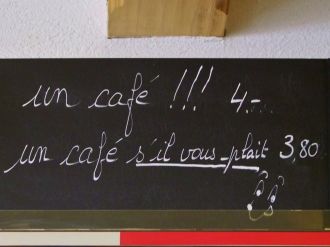 un café !!! 4.-
un café s'il vous-plait 3,80